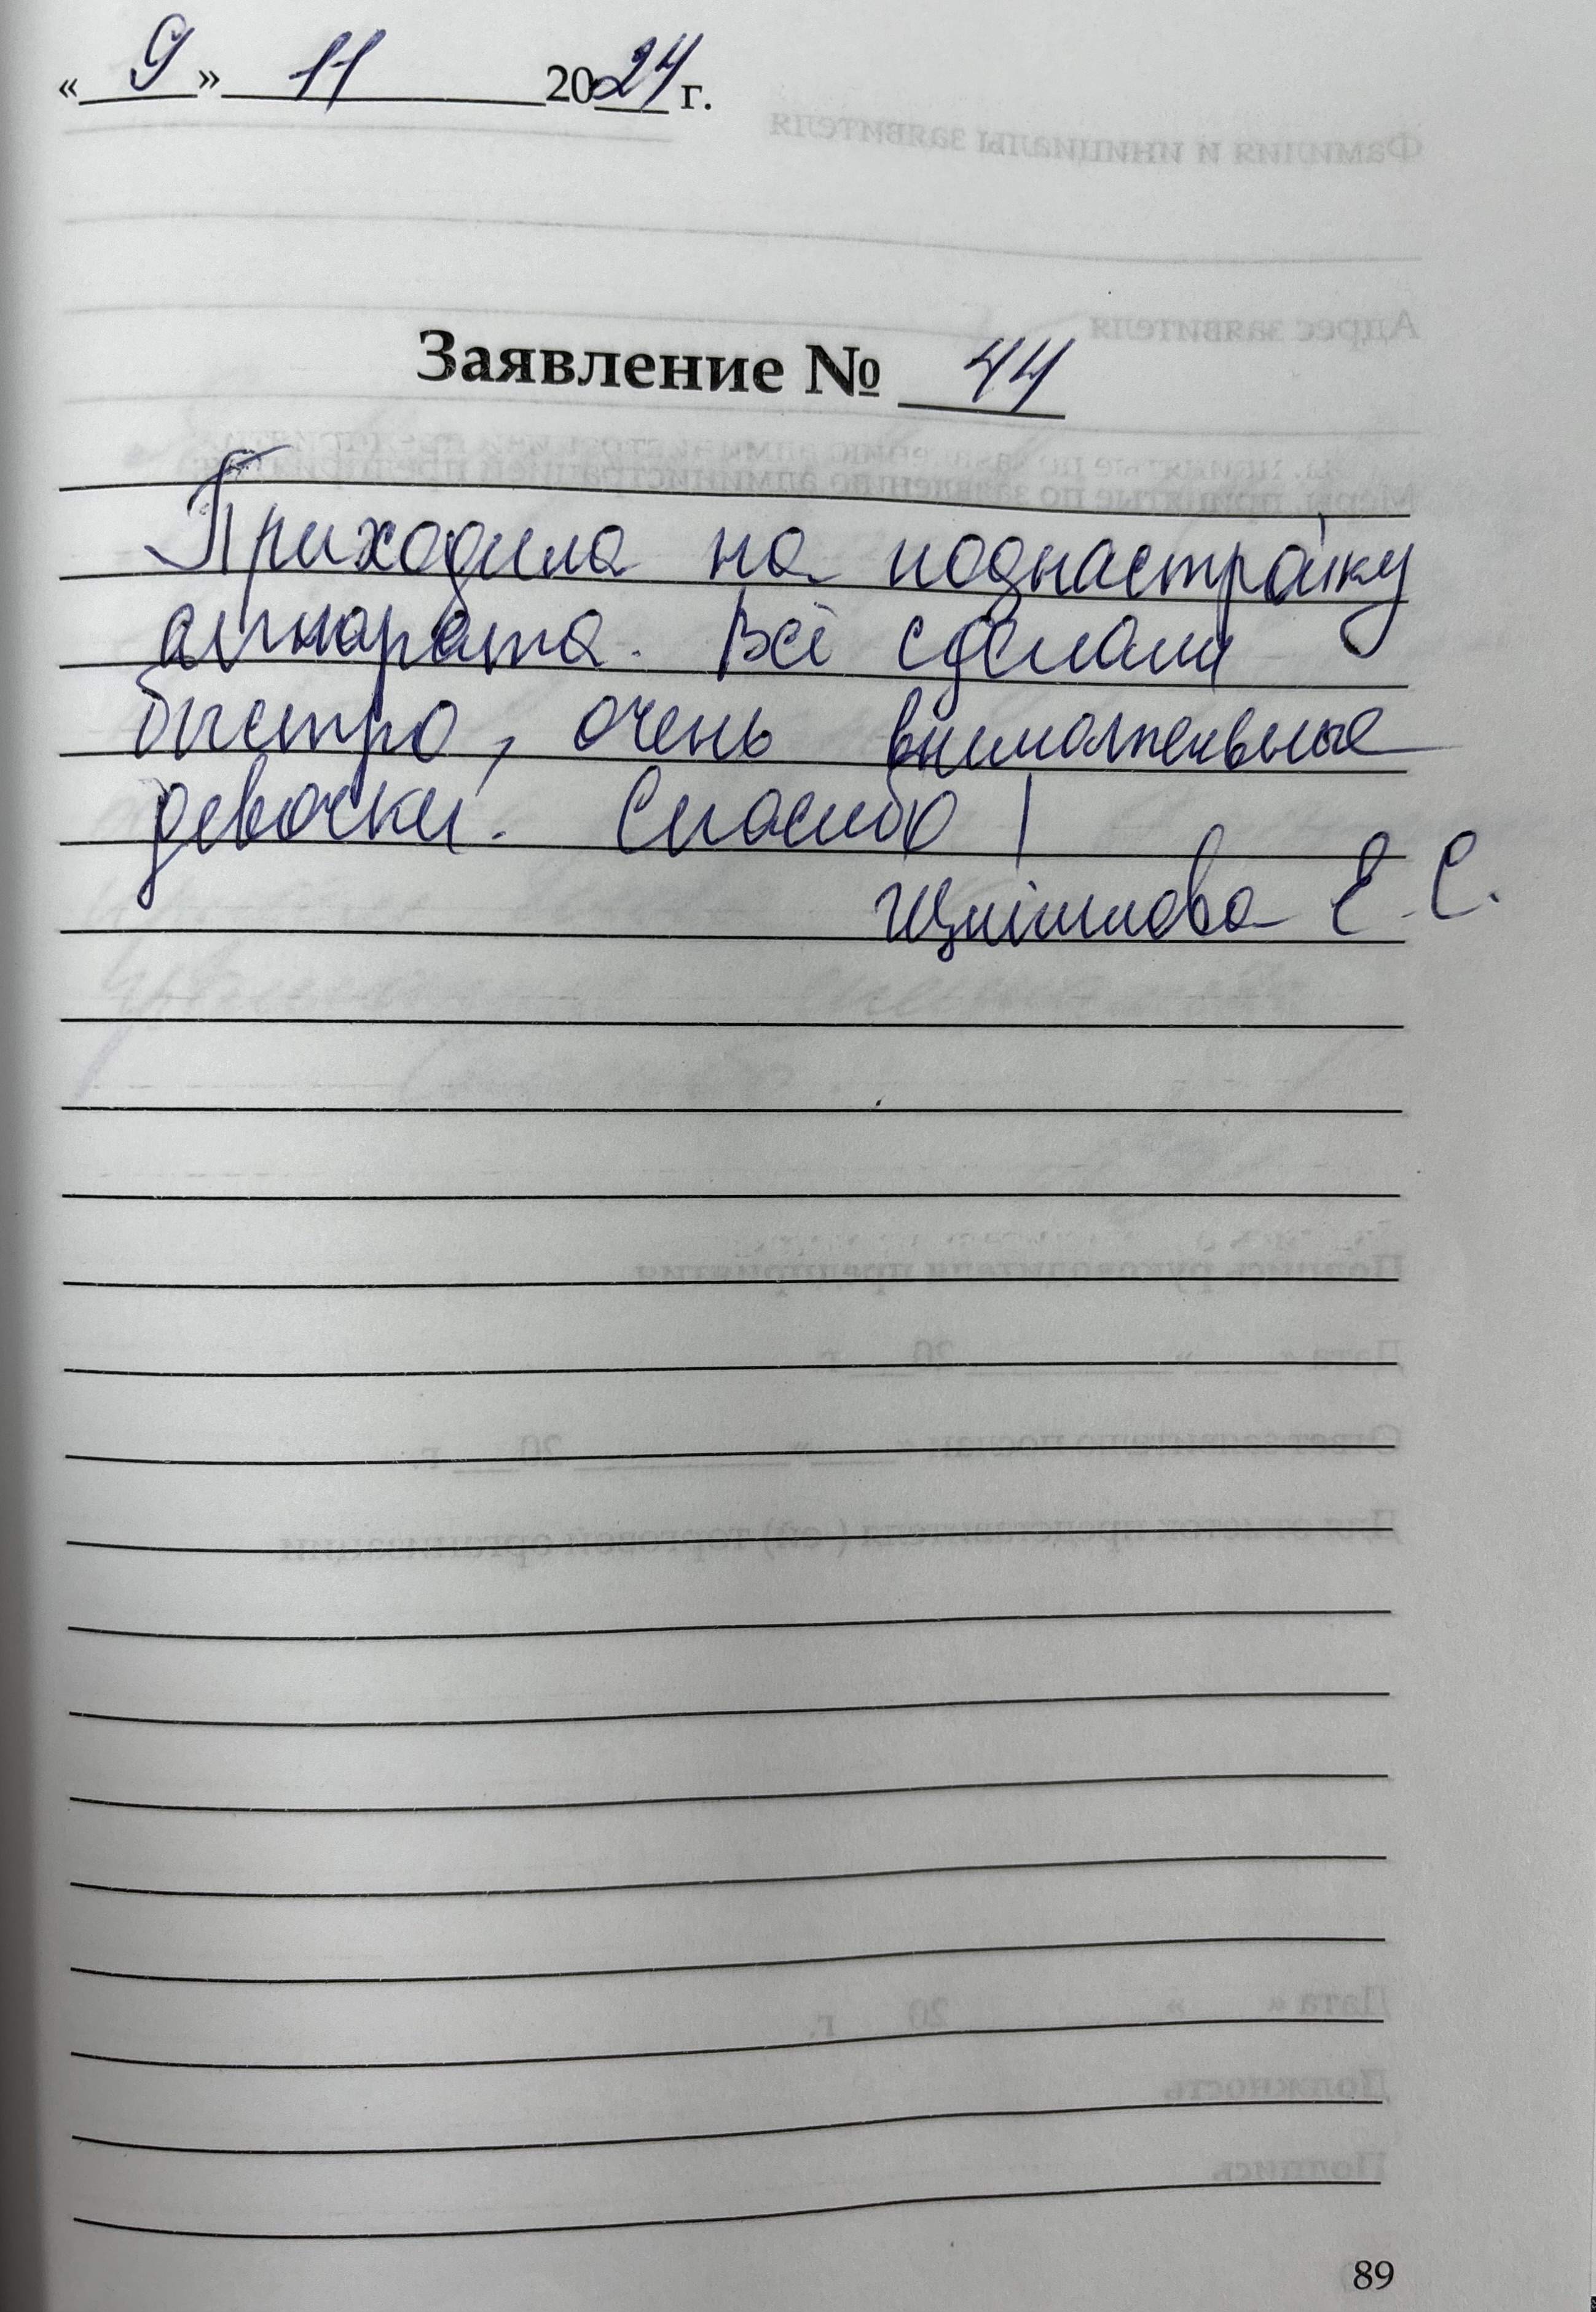 « 9 » 11 2024 г.
Заявление № 44
Приходила на поднастрайку
аппарата. Всё сделали
быстро, очень внимательные
девочки. Спасибо!
Е. С.
89